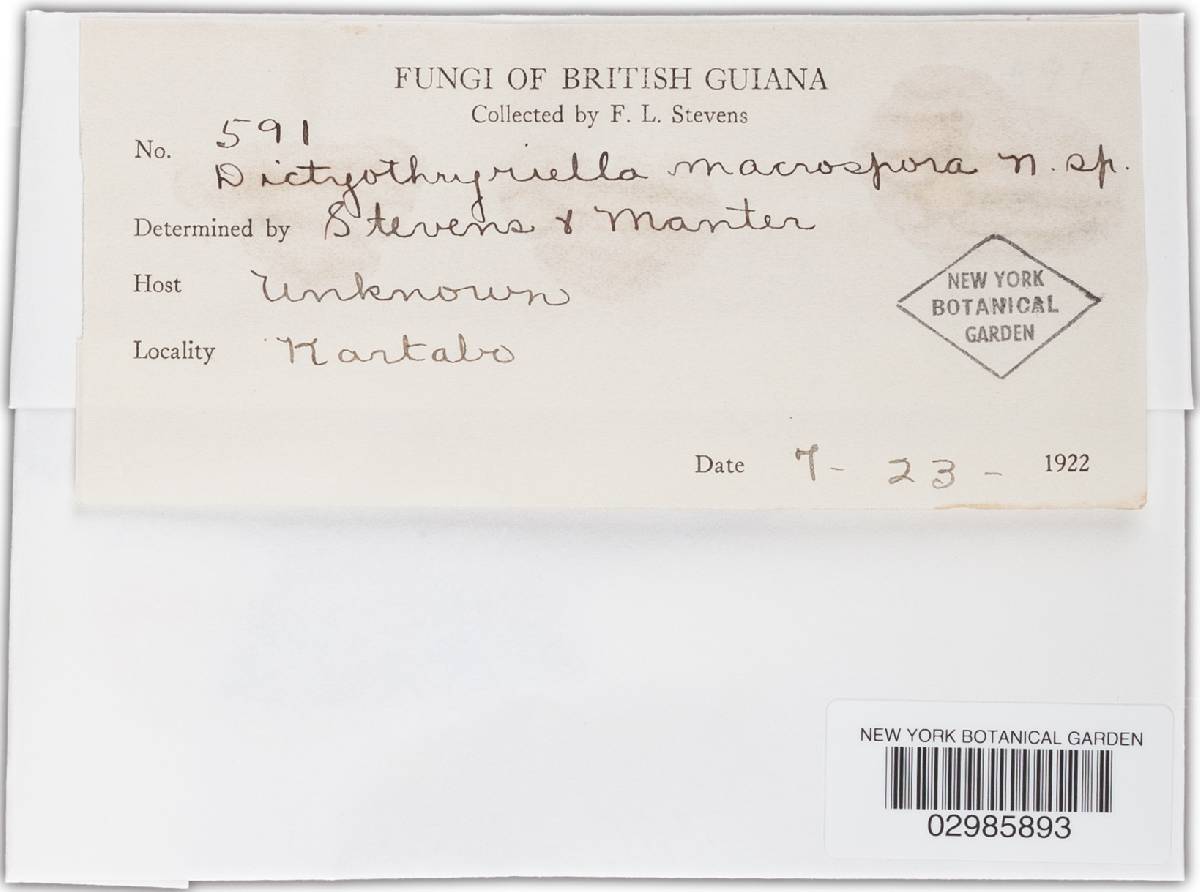 FUNGI OF BRITISH GUIANA
Collected by F. L. Stevens
No. 591
Dictyothyriella macrospora n. sp.
Determined by Stevens & Manter
Host Unknown
Locality Kartabo
NEW YORK
BOTANICAL
GARDEN
Date 7-23-1922
NEW YORK BOTANICAL GARDEN
02985893